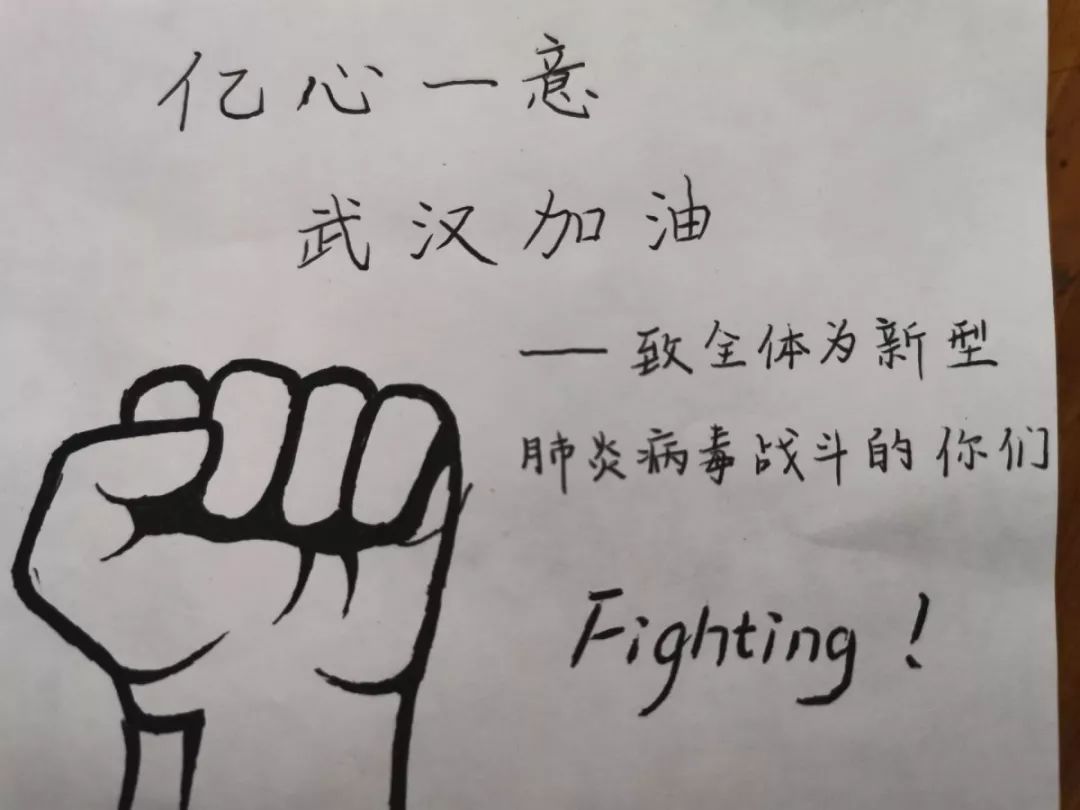 亿心一意
武汉加油
——致全体为新型
肺炎病毒战斗的你们
Fighting!